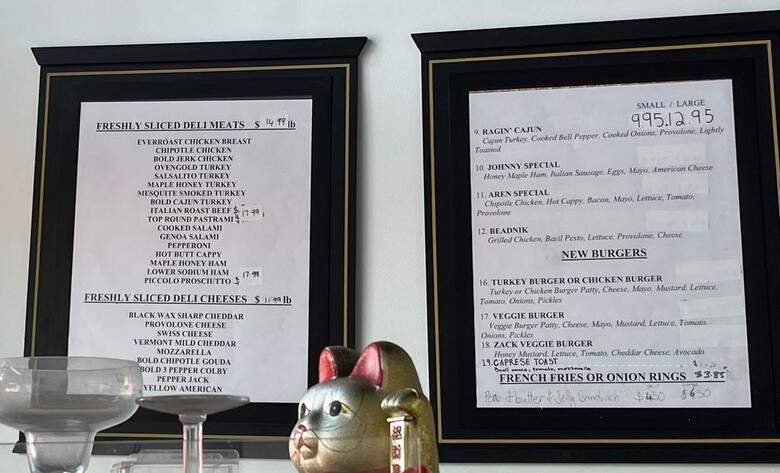 FRESHLY SLICED DELI MEATS $ 14.99 lb
EVERROAST CHICKEN BREAST
CHIPOTLE CHICKEN
BOLD JERK CHICKEN
OVENGOLD TURKEY
SALSALITO TURKEY
MAPLE HONEY TURKEY
MESQUITE SMOKED TURKEY
BOLD CAJUN TURKEY
ITALIAN ROAST BEEF $ 17.99
TOP ROUND PASTRAMI $
COOKED SALAMI
GENOA SALAMI
PEPPERONI
HOT BUTT CAPPY
MAPLE HONEY HAM
LOWER SODIUM HAM
PICCOLO PROSCIUTTO $ 17.99
FRESHLY SLICED DELI CHEESES $ 11.99 lb
BLACK WAX SHARP CHEDDAR
PROVOLONE CHEESE
SWISS CHEESE
VERMONT MILD CHEDDAR
MOZZARELLA
BOLD CHIPOTLE GOUDA
BOLD 3 PEPPER COLBY
PEPPER JACK
YELLOW AMERICAN
SMALL / LARGE
9.95 12.95
9. RAGIN' CAJUN
Cajun Turkey, Cooked Bell Pepper, Cooked Onions, Provolone, Lightly
Toasted
10. JOHNNY SPECIAL
Honey Maple Ham, Italian Sausage, Eggs, Mayo, American Cheese
11. AREN SPECIAL
Chipotle Chicken, Hot Cappy, Bacon, Mayo, Lettuce, Tomato,
Provolone
12. BEADNIK
Grilled Chicken, Basil Pesto, Lettuce, Provolone, Cheese
NEW BURGERS
16. TURKEY BURGER OR CHICKEN BURGER
Turkey or Chicken Burger Patty, Cheese, Mayo, Mustard, Lettuce,
Tomato, Onions, Pickles
17. VEGGIE BURGER
Veggie Burger Patty, Cheese, Mayo, Mustard, Lettuce, Tomato,
Onions, Pickles
18. ZACK VEGGIE BURGER
Honey Mustard, Lettuce, Tomato, Cheddar Cheese, Avocado
19. CAPRESE TOAST
tomato, mozzarella
FRENCH FRIES OR ONION RINGS $3.85
Peanut butter & Jelly Sandwich $4.50 $6.50